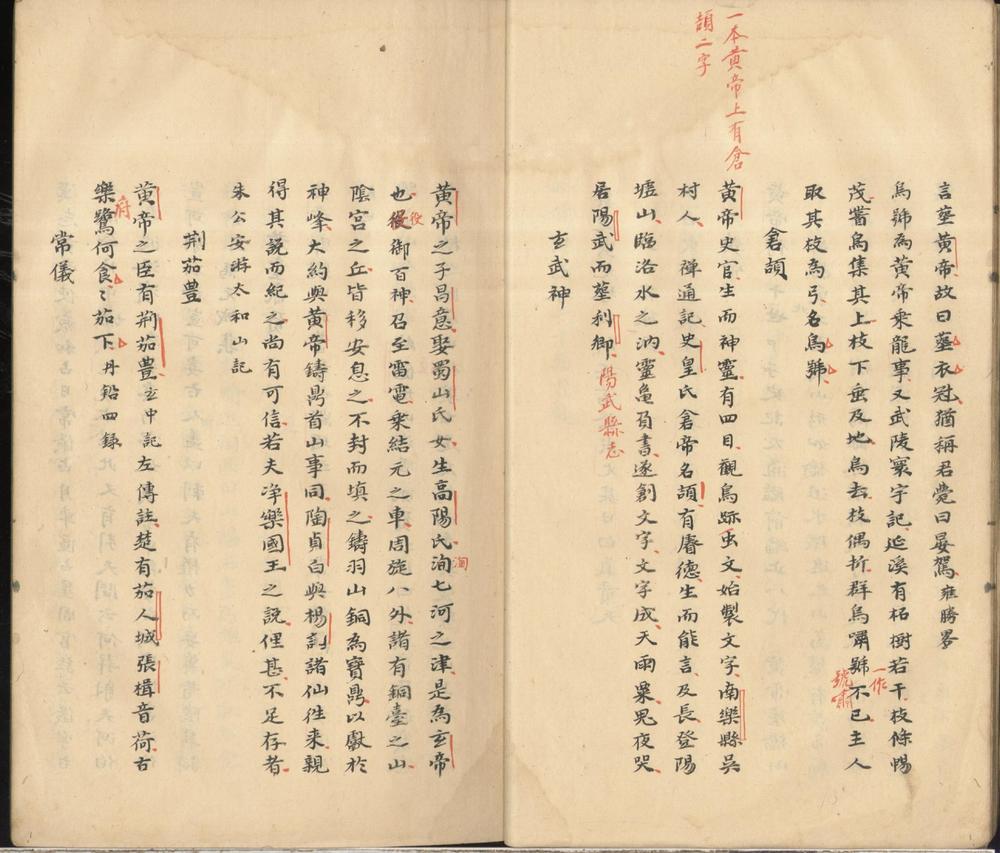 一本黄帝上有倉
頡二字
言塟黄帝故曰塟衣冠猶稱君薨曰晏駕雍勝畧
烏號為黄帝乗龍事又武陵寰宇記延溪有柘樹若干枝條暢
茂嘗烏集其上枝下垂及地烏去枝偶折群烏嘯號不已主人
一作
號嘯
取其枝為弓名烏號
倉頡
黄帝史官生而神靈有四目觀鳥跡虫文始製文字南樂縣吳
村人禪通記史皇氏倉帝名頡有睿德生而能言及長登陽
墟山臨洛水之汭靈龜負書遂創文字文字成天雨粟鬼夜哭
居陽武而塟利鄉陽武縣志
玄武神
黄帝之子昌意娶蜀山氏女生高陽氏洵七河之津是為玄帝
洄
也役御百神召至雷電乗結元之車周旋八外諸有銅臺之山
役
陰宮之丘皆移安息之不封而填之鑄羽山銅為寶鼎以獻於
神峰大約與黄帝鑄鼎首山事同陶貞白與楊許諸仙徃来親
得其說而紀之尚有可信若夫净樂國王之說俚甚不足存者
朱公安游太和山記
荆茄豊
黄帝之臣有荆茄豊玄中記左傳註楚有茄人城張楫音荷古
樂鷺何食〻茄下丹鉛四録
府
常儀